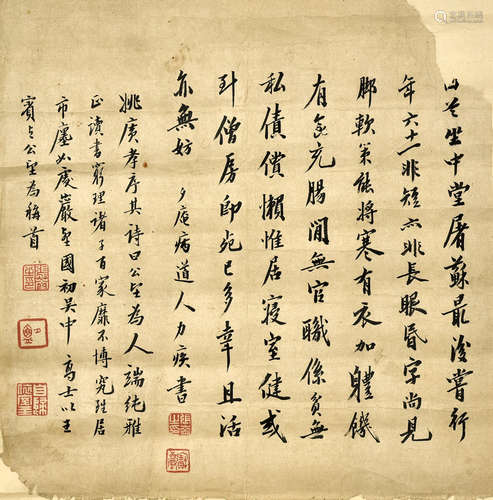 坐中堂屠蘇最後嘗行
年六十一非短亦非長眼昏字尚見
脚軟策能將寒有衣加體饑
有食充腸閒無官職係貧無
私債償懶惟居寢室健或
到僧房即死已多幸且活
亦無妨
夕庵病道人力疾書
姚廣孝序其詩曰公望為人端純雅
正讀書窮理諸子百家靡不博究雖居
市廛如處巖壑國初吳中高士以王
賓與公望為稱首